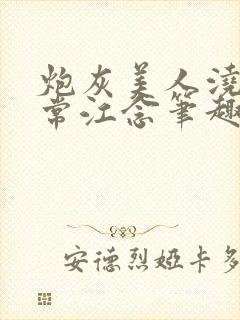 炮灰美人浇
常江念笔趣
安德烈娅卡多